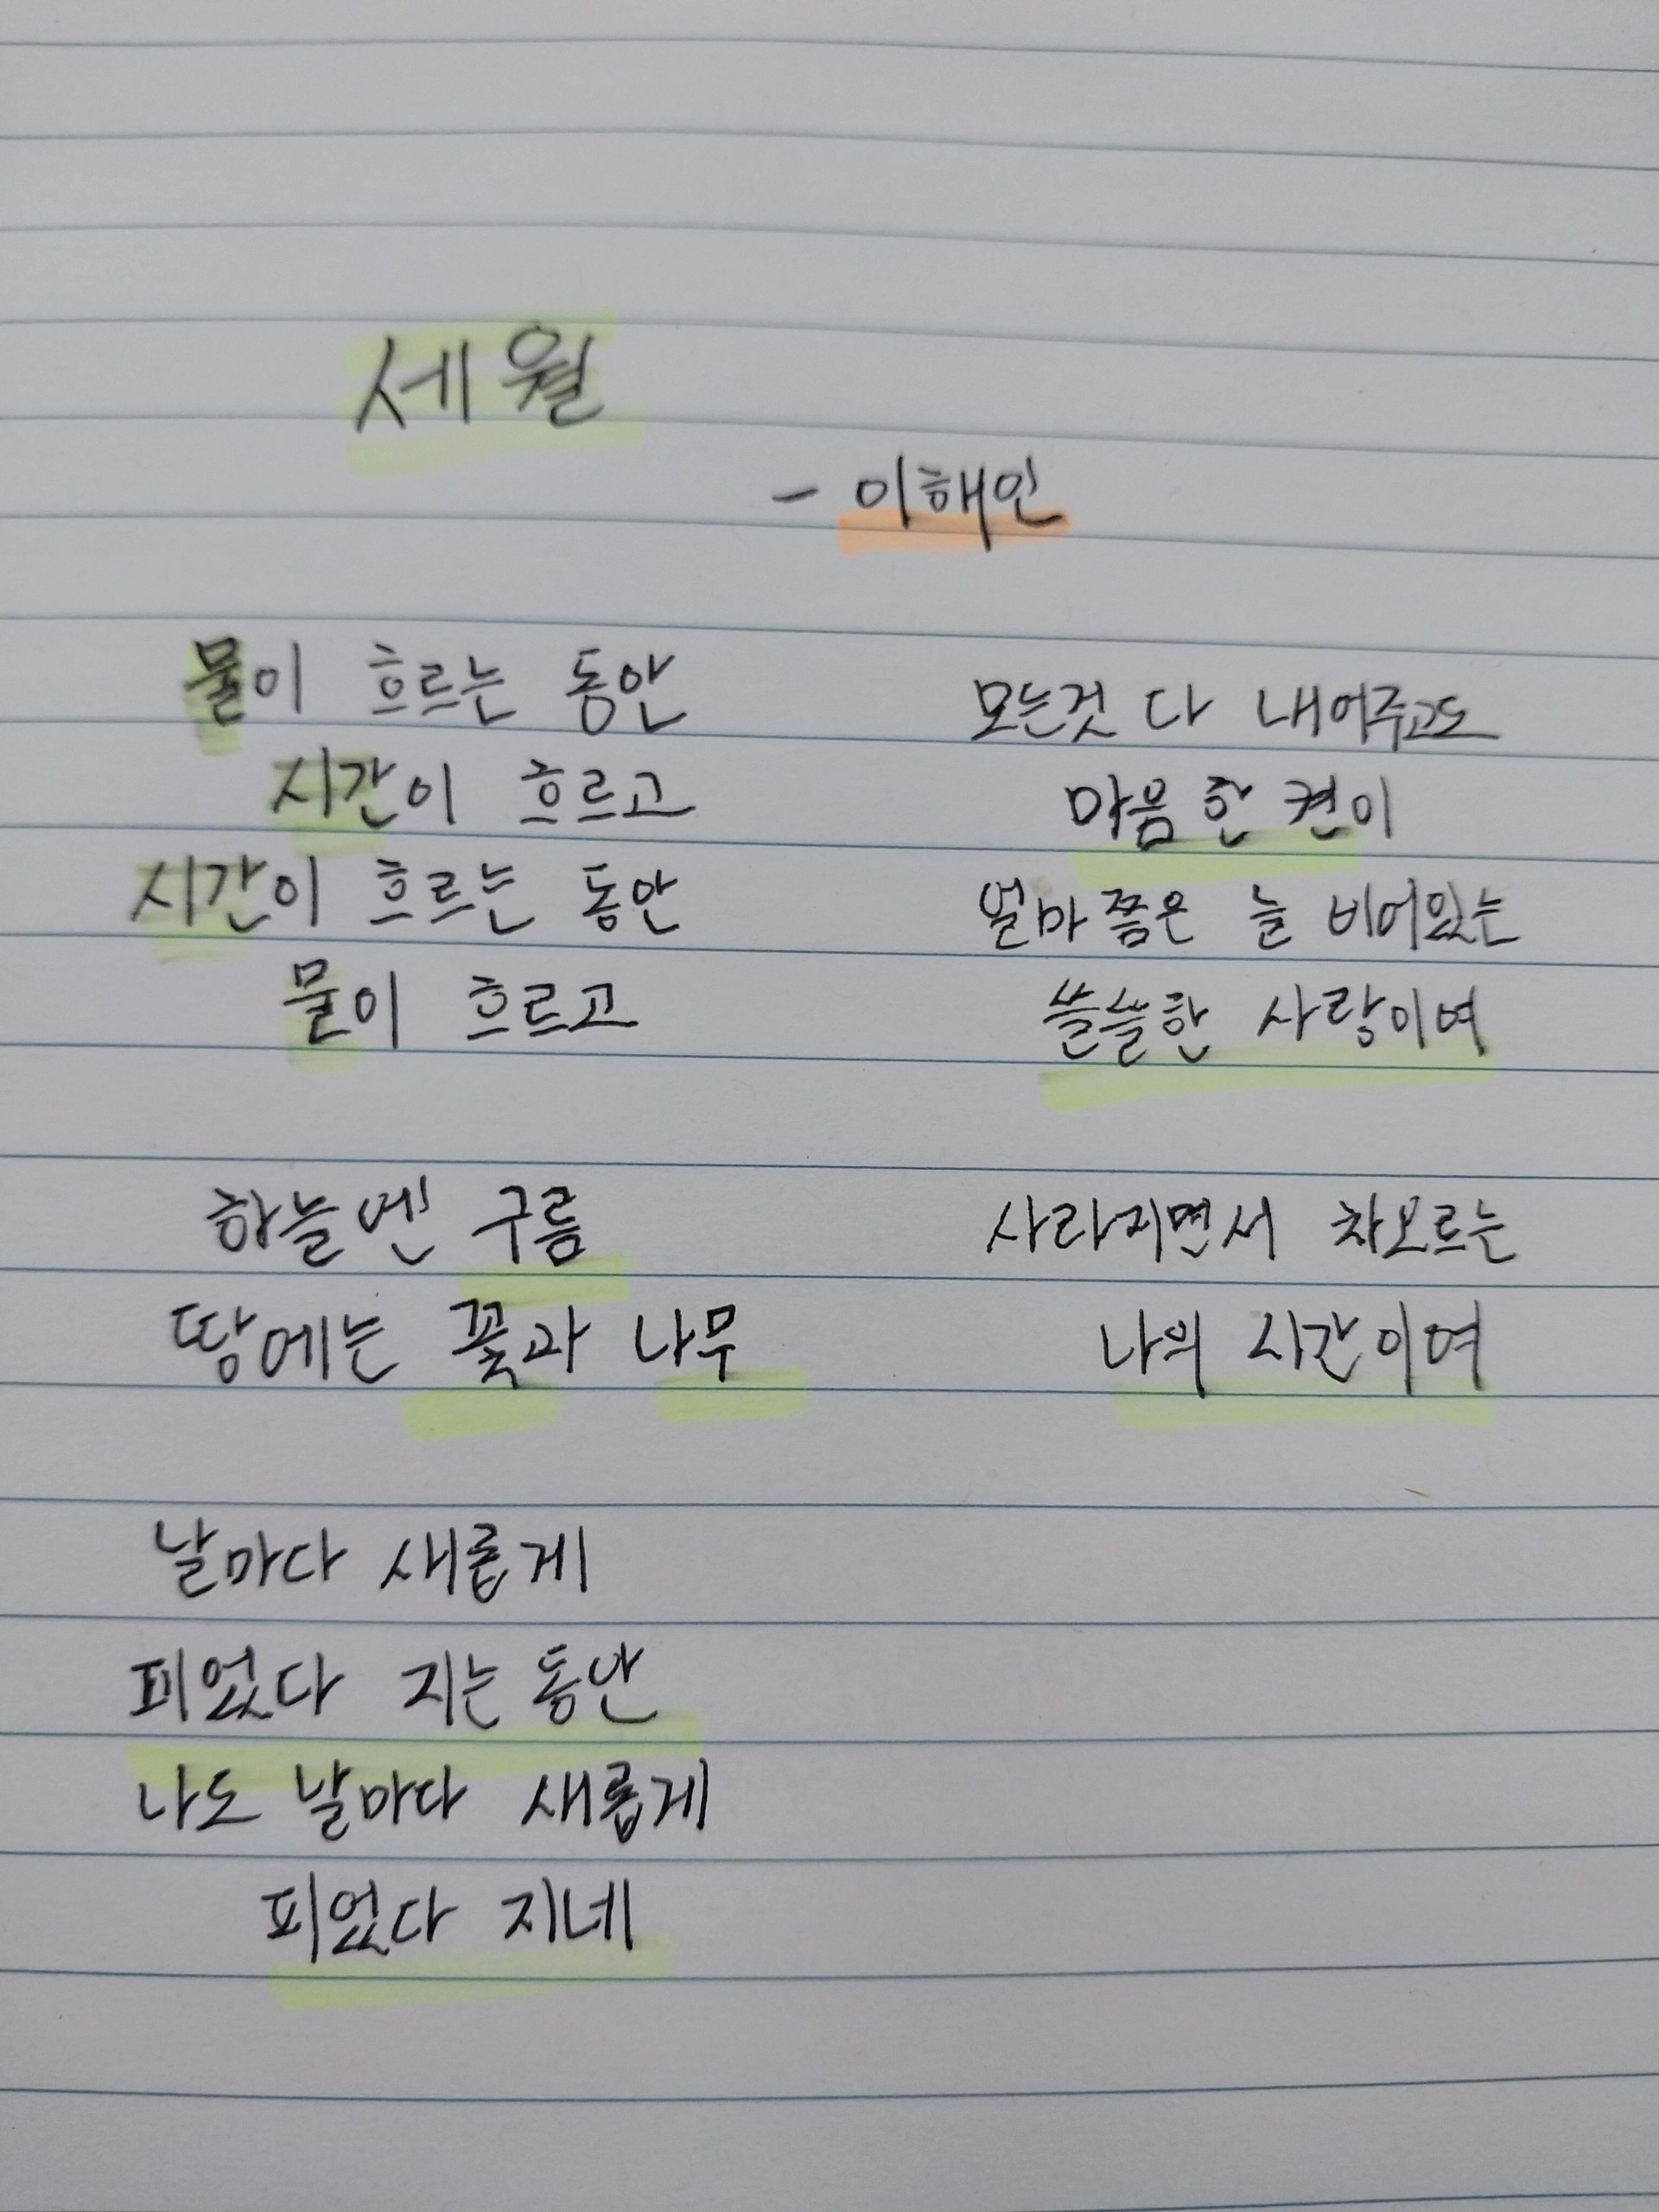 세월
- 이해인
물이 흐르는 동안
시간이 흐르고
시간이 흐르는 동안
물이 흐르고
하늘엔 구름
땅에는 꽃과 나무
날마다 새롭게
피었다 지는 동안
나도 날마다 새롭게
피었다 지네
모든것 다 내어주고도
마음 한 켠이
얼마쯤은 늘 비어있는
쓸쓸한 사랑이여
사라지면서 차오르는
나의 시간이여